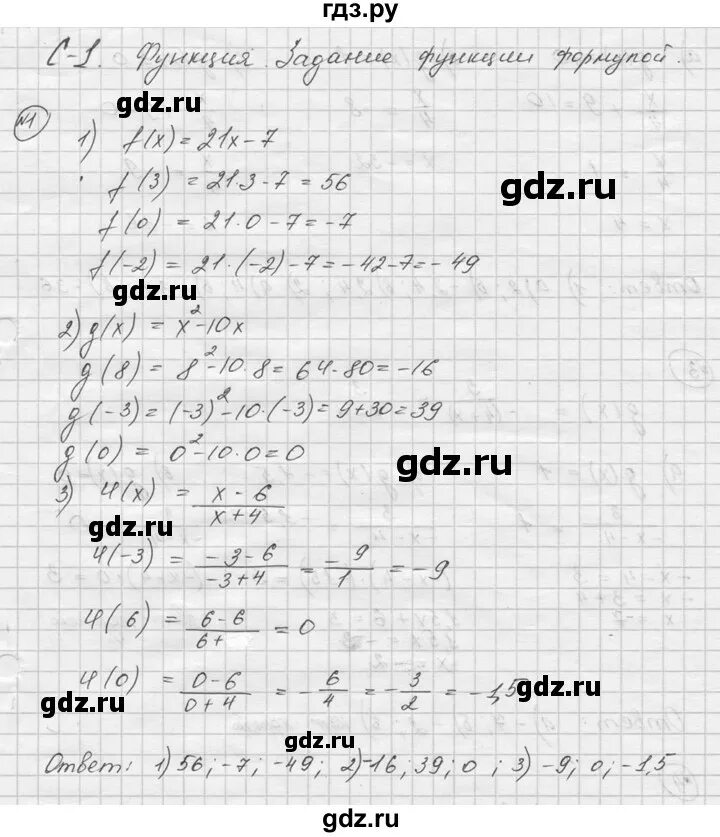 гдз.ру
С-1. Функция. Задание функции формулой.
gdz.ru
№1
1) f(x) = 21x - 7
f(3) = 21·3 - 7 = 56
gdz.ru
f(0) = 21·0 - 7 = -7
f(-2) = 21·(-2) - 7 = -42 - 7 = -49
gdz.ru
2) g(x) = x² - 10x
g(8) = 8² - 10·8 = 64 - 80 = -16
g(-3) = (-3)² - 10·(-3) = 9 + 30 = 39
g(0) = 0² - 10·0 = 0
gdz.ru
3) φ(x) = (x - 6)/(x + 4)
gdz.ru
φ(-3) = (-3 - 6)/(-3 + 4) = -9/1 = -9
φ(6) = (6 - 6)/(6 + = 0
gdz.ru
φ(0) = (0 - 6)/(0 + 4) = -6/4 = -3/2 = -1,5
gdz.ru
gdz.ru
gdz.ru
Ответ: 1) 56; -7; -49; 2) -16; 39; 0 ; 3) -9; 0; -1,5
gdz.ru